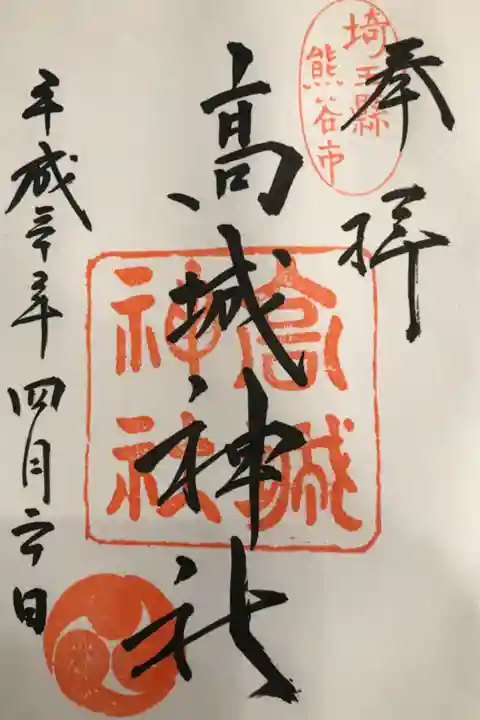 奉拝
埼玉縣
熊谷市
高城神社
高城
神社
平成三十年四月六日